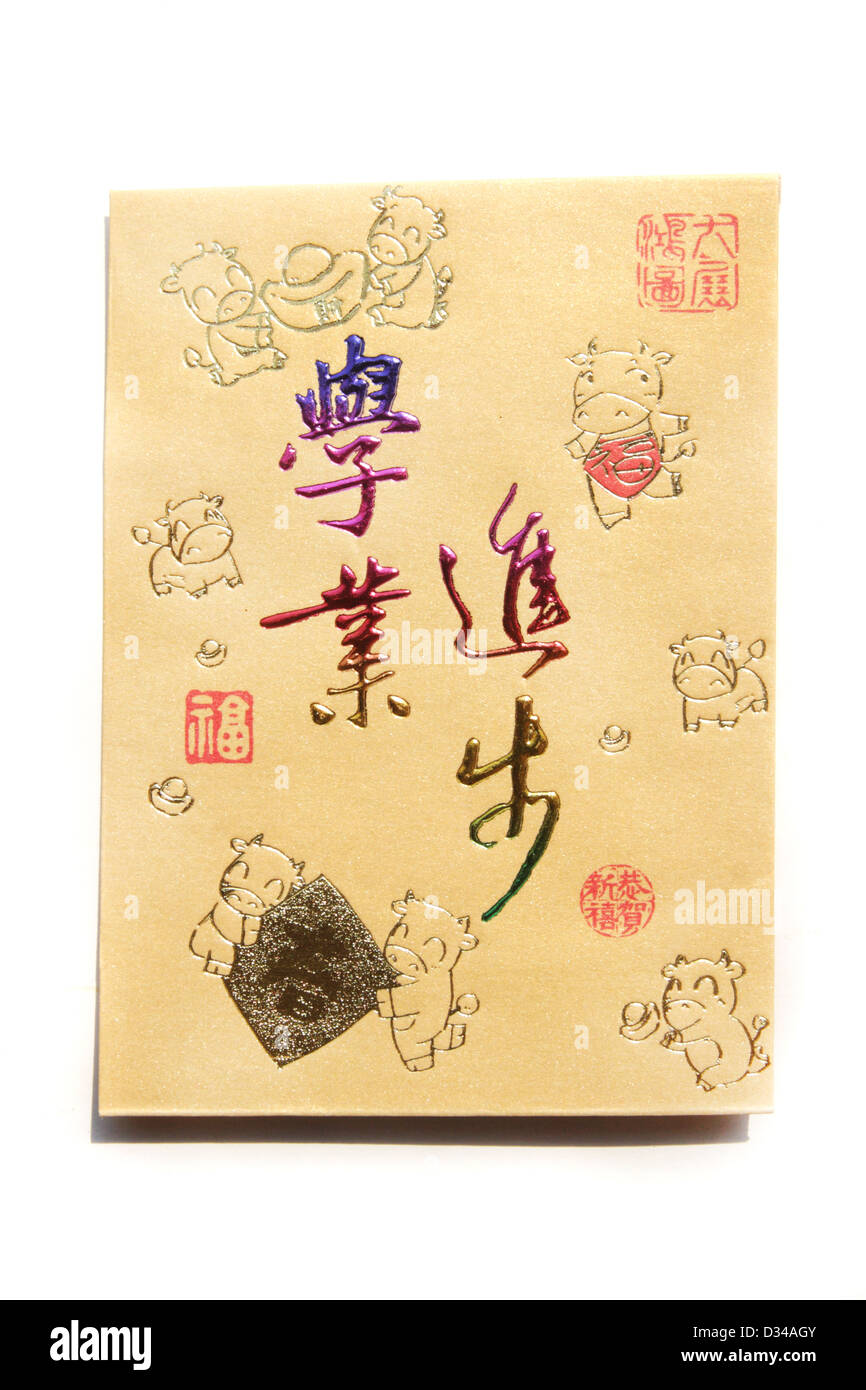 學業
進步
大展
鴻圖
財
福
福
春
恭賀
新禧
alamy
alamy
Image ID: D34AGY
www.alamy.com